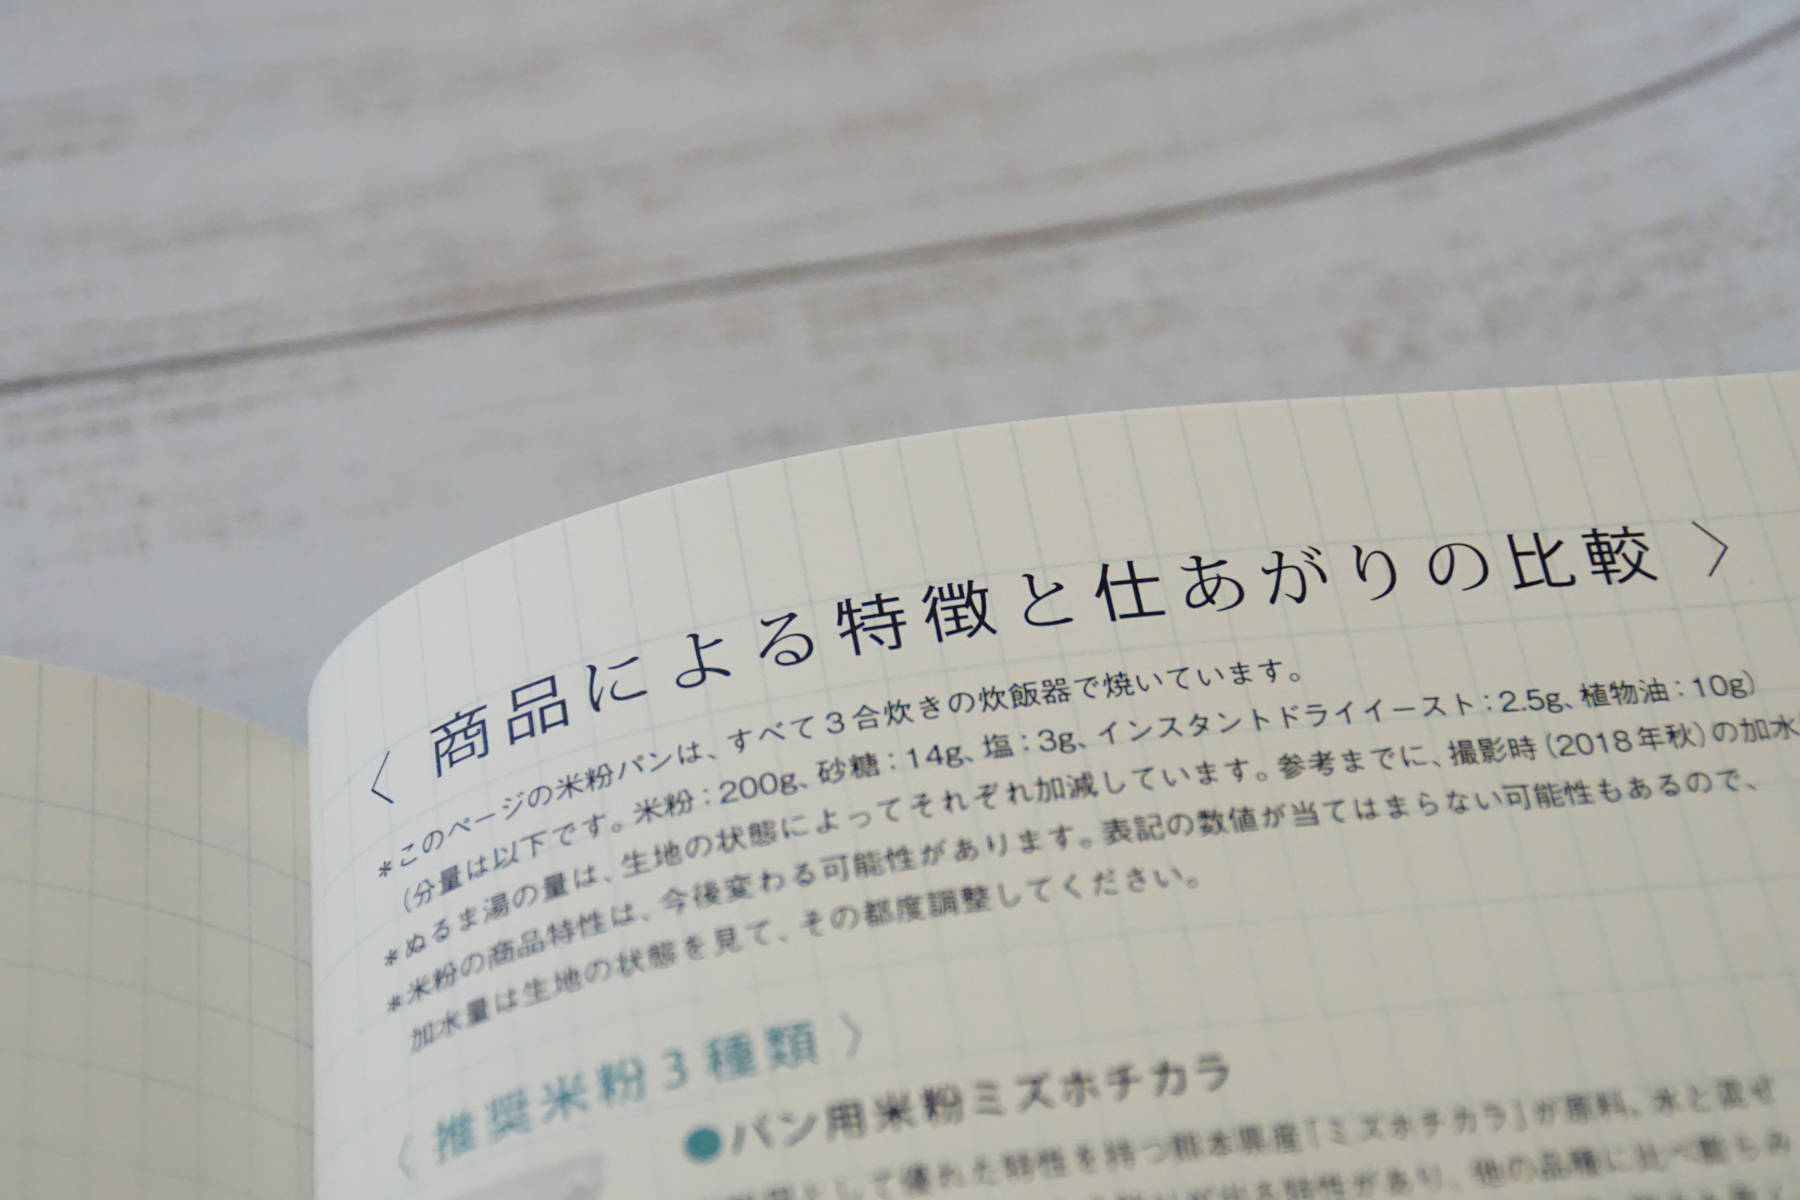 〈 商品による特徴と仕あがりの比較 〉
＊このページの米粉パンは、すべて3合炊きの炊飯器で焼いています。
（分量は以下です。米粉：200g、砂糖：14g、塩：3g、インスタントドライイースト：2.5g、植物油：10g）
＊ぬるま湯の量は、生地の状態によってそれぞれ加減しています。参考までに、撮影時（2018年秋）の加水
＊米粉の商品特性は、今後変わる可能性があります。表記の数値が当てはまらない可能性もあるので、
加水量は生地の状態を見て、その都度調整してください。
〈 推奨米粉3種類 〉
●パン用米粉ミズホチカラ
として優れた特性を持つ熊本県産「ミズホチカラ」が原料。水と混ぜ
特性があり、他の品種に比べ膨らみ